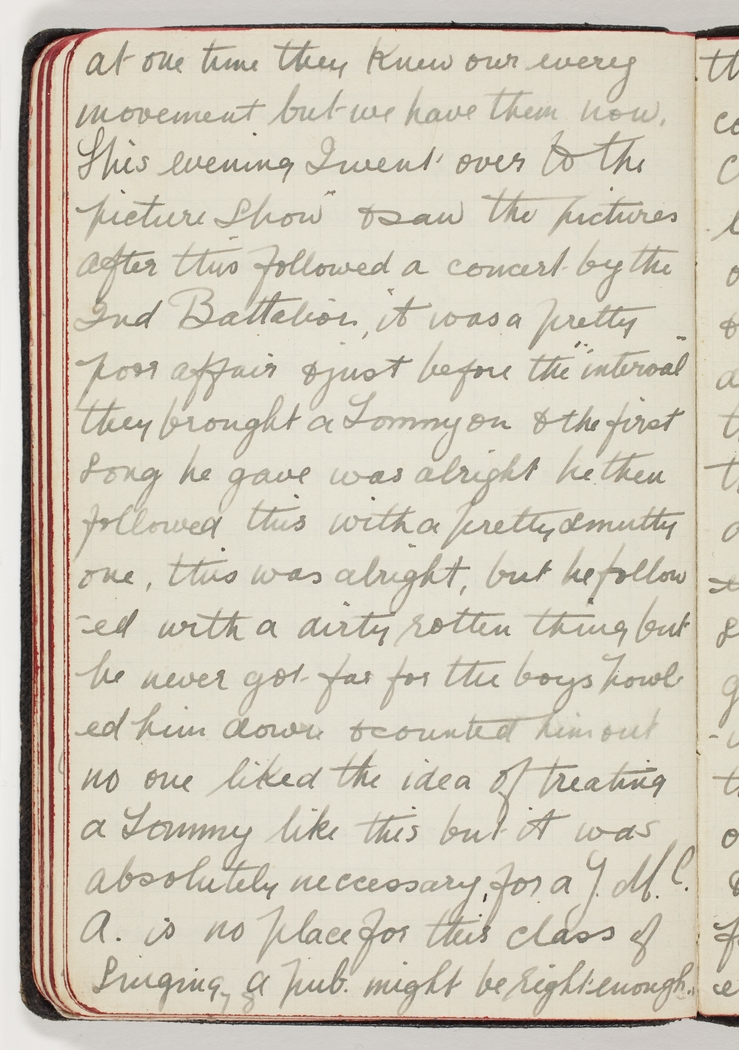 at one time they knew our every
movement but we have them now.
This evening I went over to the
"picture Show" & saw the pictures
after this followed a concert by the
2nd Battalion, it was a pretty
poor affair & just before the "interval"
they brought a Tommy on & the first
song he gave was alright he then
followed this with a pretty smutty
one, this was alright, but he follow
-ed with a dirty rotten thing but
he never got far for the boys howl-
ed him down & counted him out
no one liked the idea of treating
a Tommy like this but it was
absolutely neccessary, for a Y. M. C.
A. is no place for this class of
singing, a pub. might be right enough.